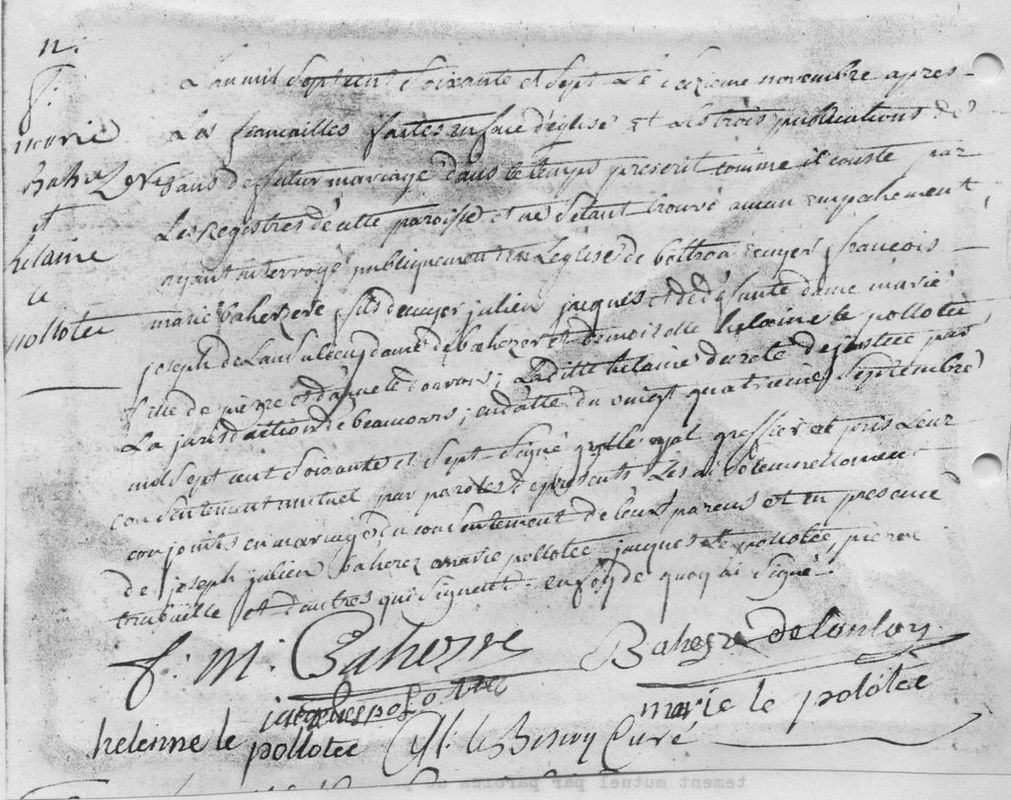 n.
f.
marie
Bahezre
et
helaine
le
pollotec
L an mil Sept cent Soixante et Sept Le seizieme novembre apres
Les fiancailles faites en face d'eglise Et Les trois publications de
bans de futur mariage dans le temps prescrit comme il conste par
Les Registres de cette paroisse et ne s'etant trouvé aucun empechement
ayant interrogé publiquement dans Leglise de bothoa ecuyer françois
marie bahezre fils d'ecuyer julien jacques et de defunte dame marie
joseph de dame de bahezre et demoiselle helaine le pollotec
fille de pierre et d'anne le ; Laditte helaine decreté de justice par
La jurisdiction de beaucours ; en datte du vingt quatrieme Septembre
mil Sept cent Soixante et Sept Signé greffier et pris Leur
consentement mutuel par paroles de presents Les ai Solennellement
conjoints en mariage du consentement de leurs parens et en presence
de joseph julien bahezre marie pollotec jacques Le pollotec, pierre
et d'autres qui Signent : en foy de quoy ai Signé .
f: M: Bahezre
Bahezre de Lanlay
jacques pollotec
marie le polotec
helenne le pollotec
le Curé
tement mutuel par paroles